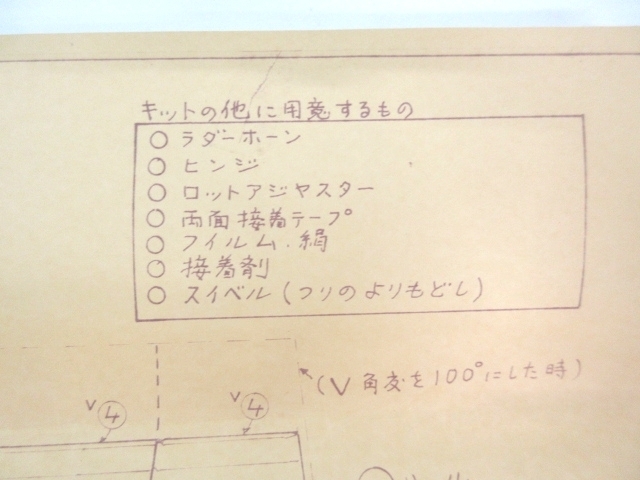 キットの他に用意するもの
○ ラダーホーン
○ ヒンジ
○ ロットアジャスター
○ 両面接着テープ
○ フイルム.絹
○ 接着剤
○ スイベル(つりのよりもどし)
(V角度を100°にした時)
V④
V④